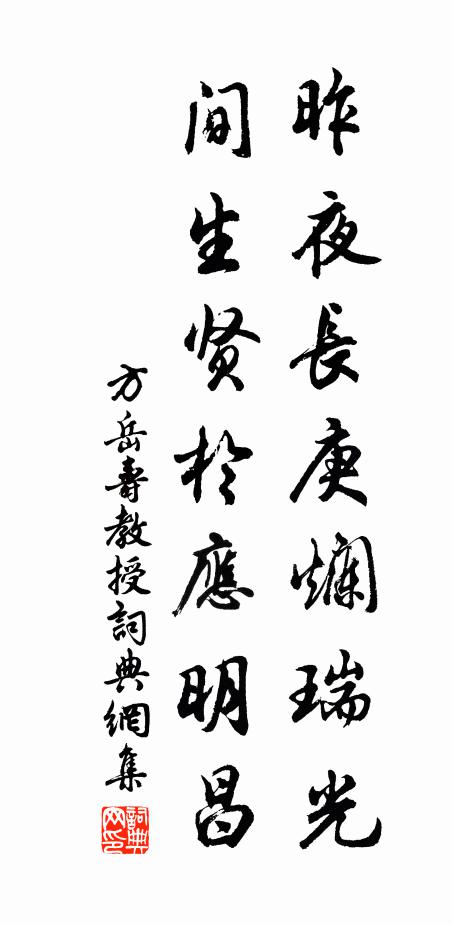 昨夜長庚爛瑞光
间生贤於應明昌
方岳壽教授詞典網集
詞典网印